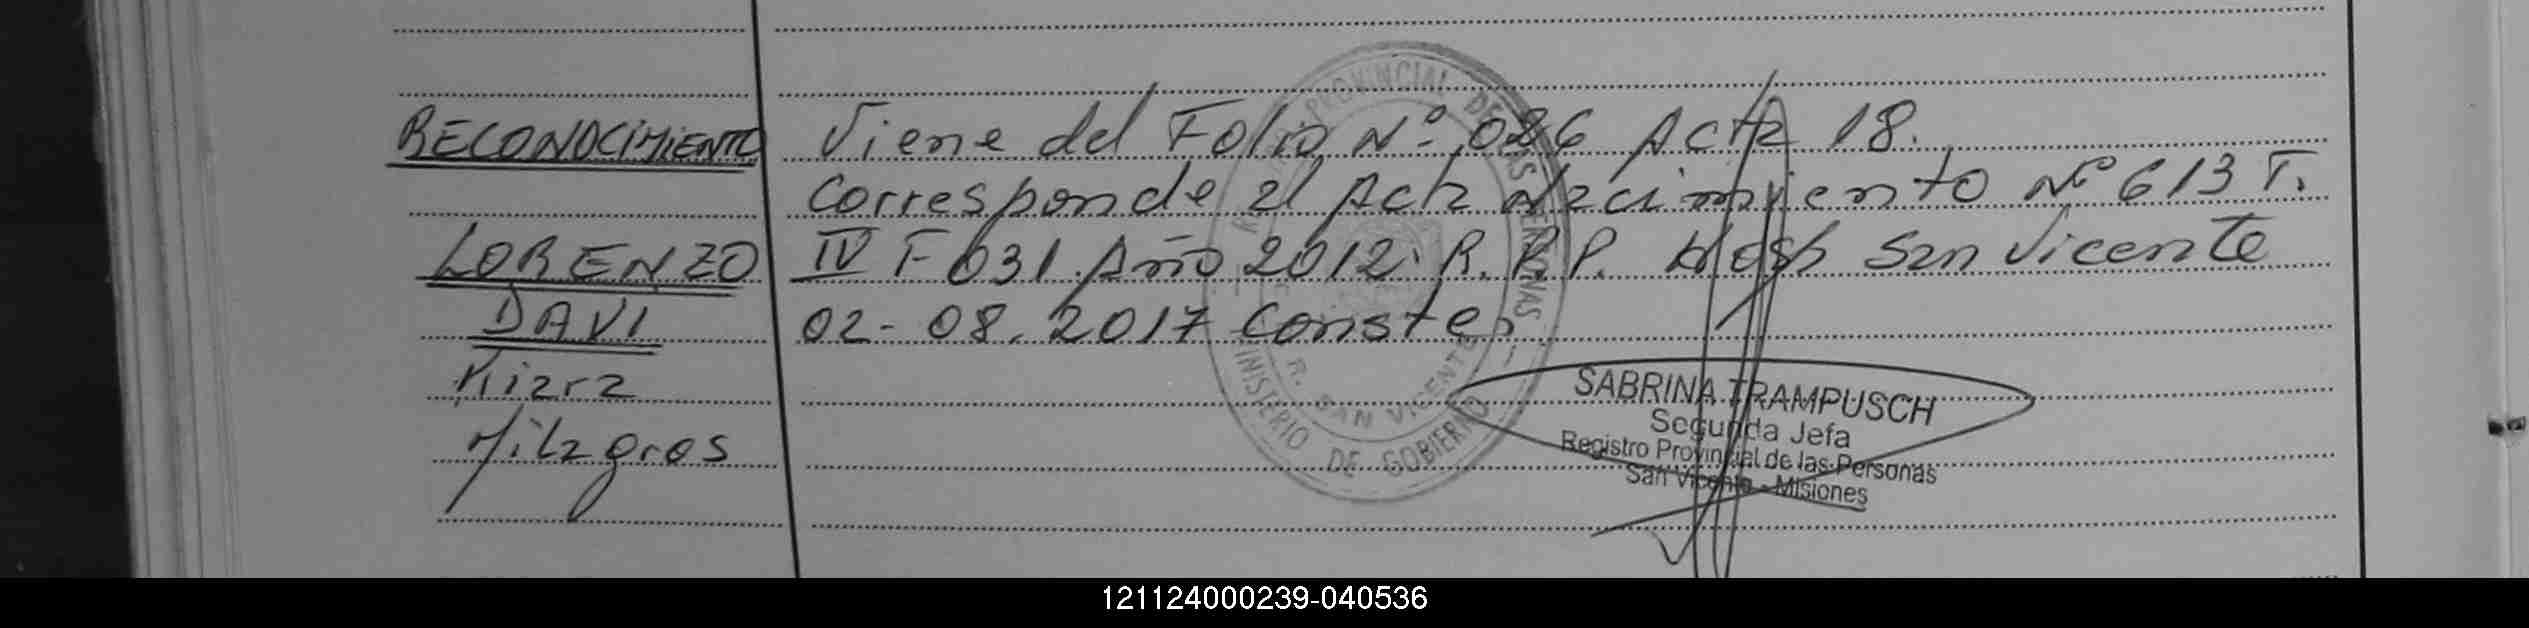 RECONOCIMIENTO
LORENZO
DAVI
Kiara
Milagros
Viene del Folio Nº 026 Acta 18.
Corresponde al Acta Nacimiento Nº 613 T.
IV F 031 Año 2012. R. P. P. Hosp San Vicente
02-08-2017 Conste.
PROVINCIAL DE LAS PERSONAS
R. SAN VICENTE
MINISTERIO DE GOBIERNO
SABRINA TRAMPUSCH
Segunda Jefa
Registro Provincial de las Personas
San Vicente - Misiones
121124000239-040536